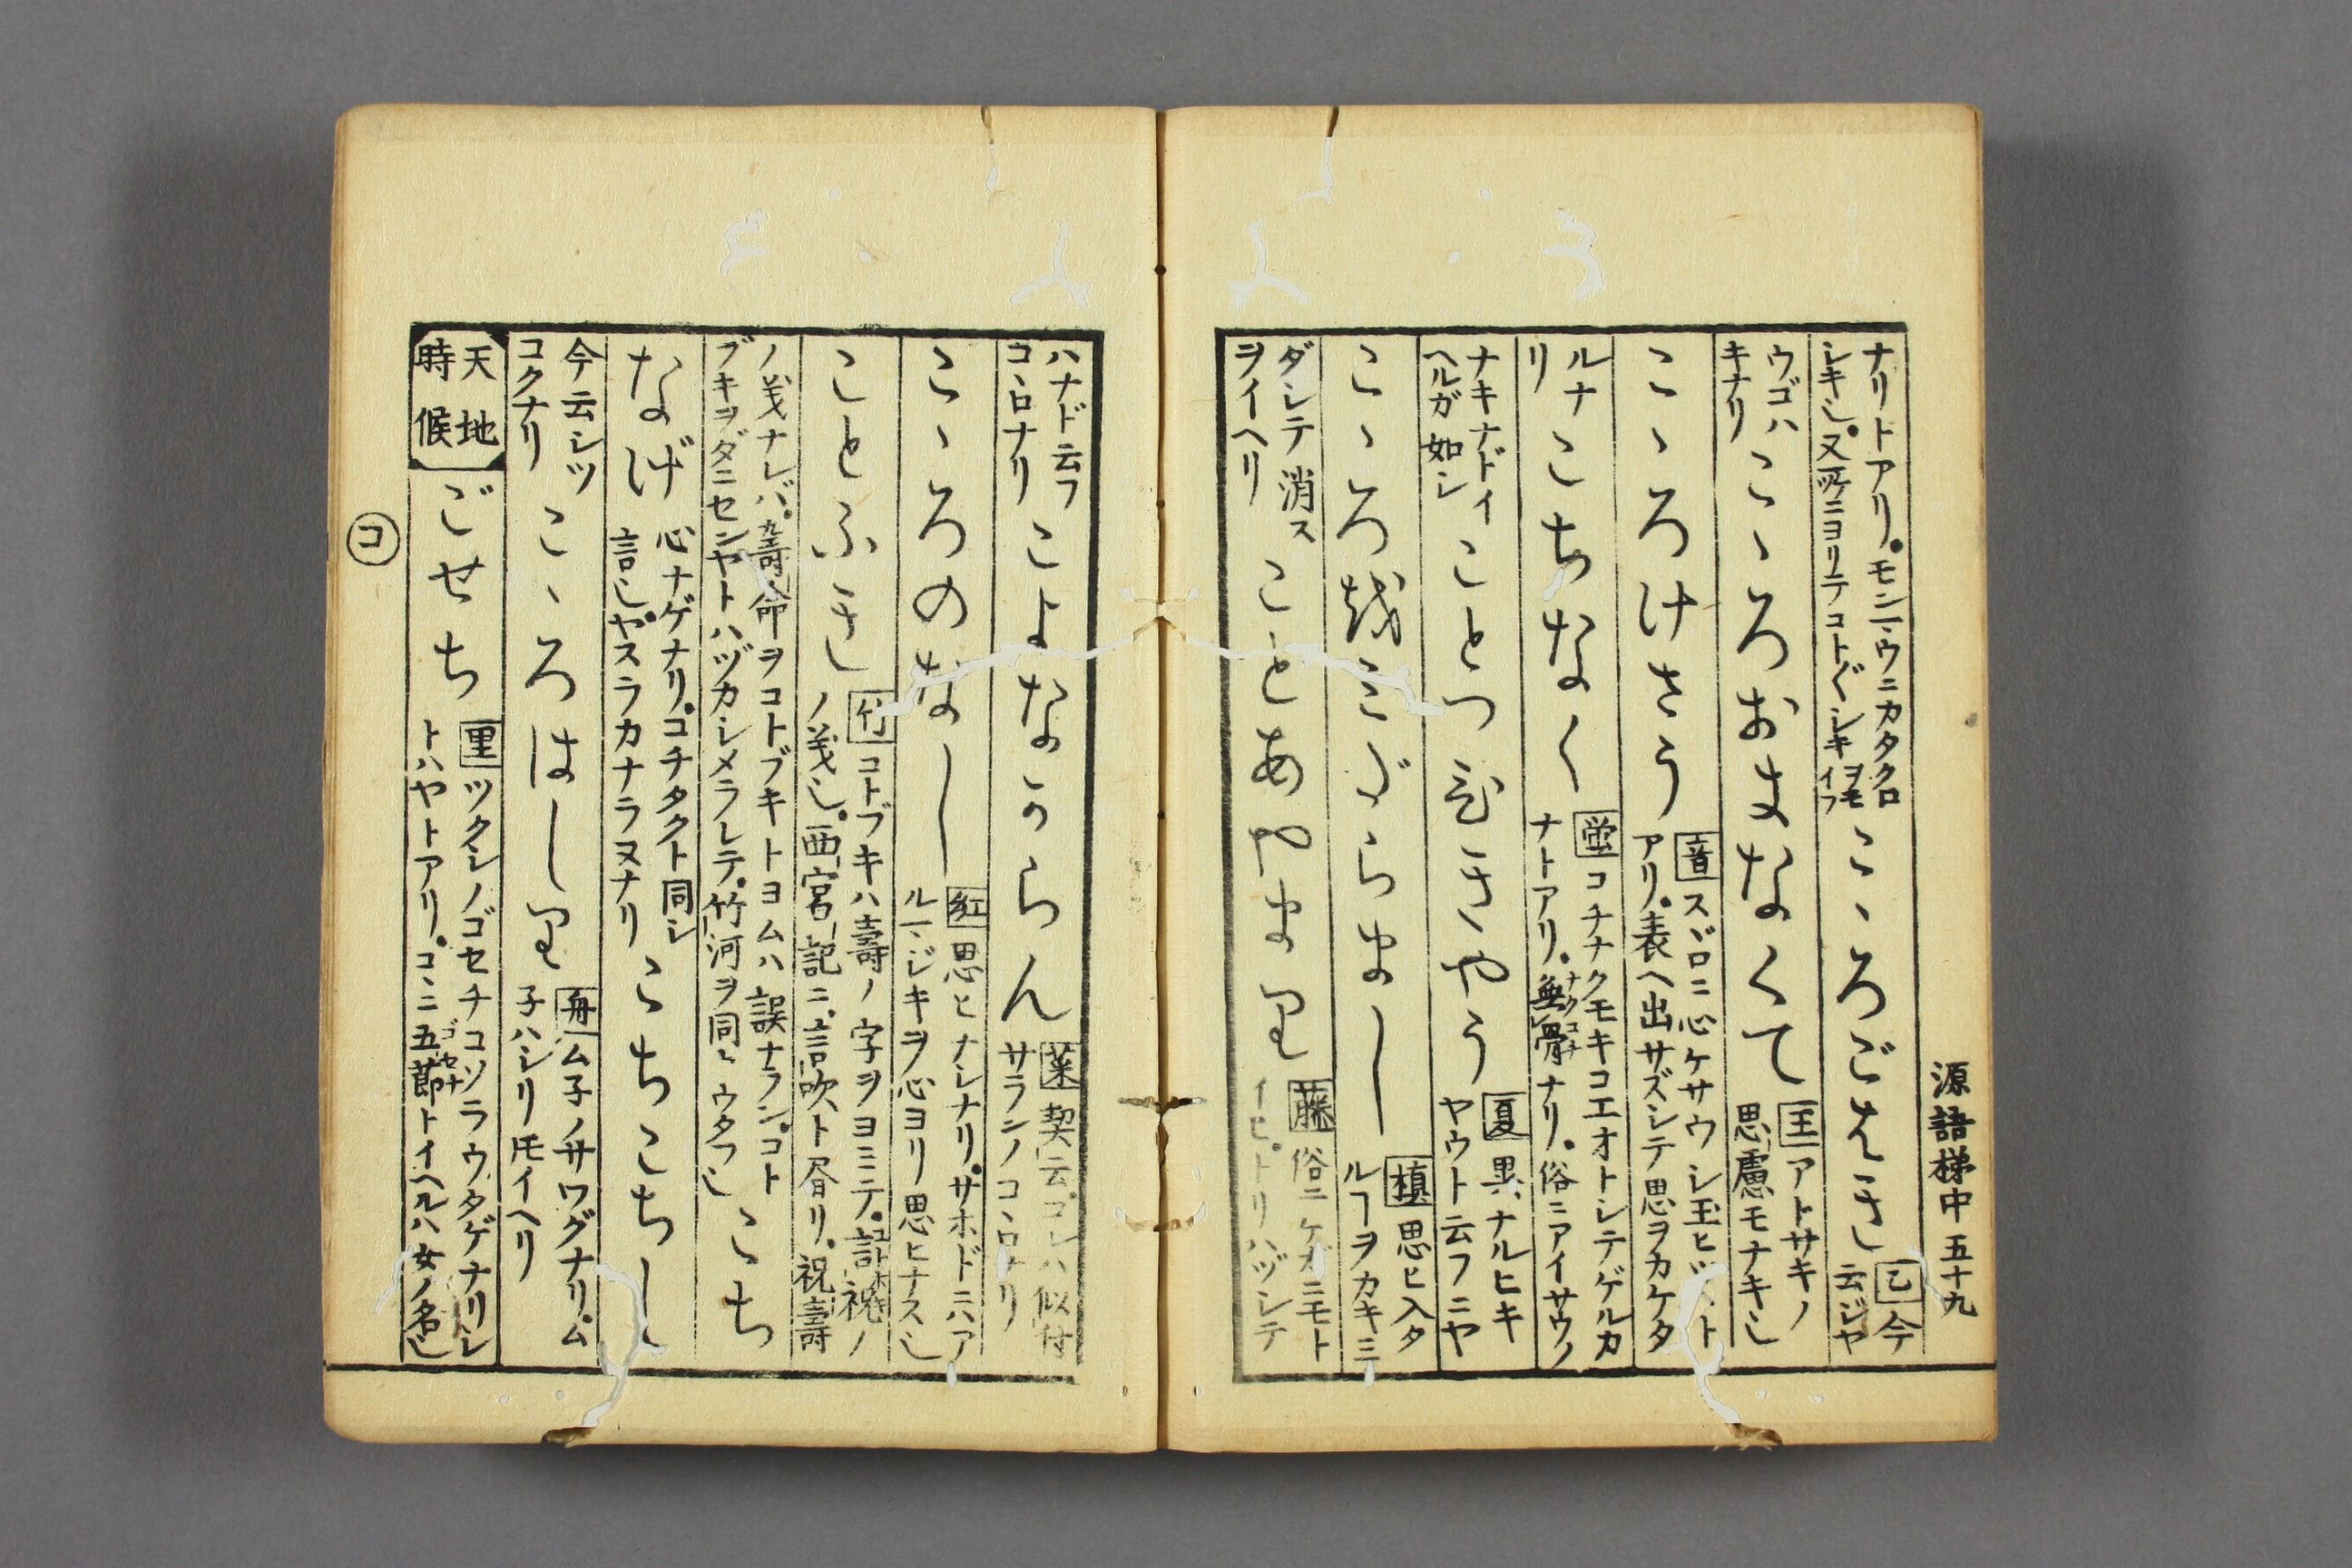 源語梯中 五十九
ナリトアリ。モンヽウニカタクロ
シキ也。又所ニヨリテコトぐシキ
ヲモ
イフ
こゝろごはき
乙 今
云ジヤ
ウゴハ
キナリ
こゝろおまなくて
玉 アトサキノ
思慮モナキ也
こゝろけさう
音 スヾロニ心ケサウシ玉ヒ
アリ。表ヘ出サズシテ思ヲカケタ
ルナ
リ
こちなく
蛍 コチナクモキコエオトシテゲルカ
ナトアリ。無骨ナリ。俗ニアイサウノ
ナキナドイ
ヘルガ如シ
ことつひきやう
夏 異ナルヒキ
ヤウト云フニヤ
こゝろ越ミづらまし
槙 思ヒ入タ
ルヿヲカキミ
ダシテ消ス
ヲイヘリ
ことあやまり
藤 俗ニケガニモト
イヒ。トリハヅシテ
ハナド云フ
コヽロナリ
こよなからん
菜 契云コレハ似付
サラシノコヽロナリ
こゝろのなし
紅 思ヒナシナリ。サホドニハア
ルヽジキヲ心ヨリ思ヒナス也
ことふき
竹 コトブキハ壽ノ字ヲヨミテ。詩祝ノ
ノ義也。西宮記ニ。言吹ト昏リ。祝壽
ノ義ナレバ。壽命ヲコトブキトヨムハ誤ナラン。コト
ブキヲダニセンヤトハヅカシメラレテ。竹河ヲ同ヽウタフ也
こち
なげ
心ナゲナリ。コチタクト同シ
言也。ヤスラカナラヌナリ
こちこちし
今云シツ
コクナリ
こゝろはしり
舟 ム子ノサワグナリ。ム
子ハシリ𪜈イヘリ
天地
時候
ごせち
里 ツクシノゴセチコソラウタゲナリシ
トハヤトアリ。コヽニ五節トイヘルハ女ノ名也
コ